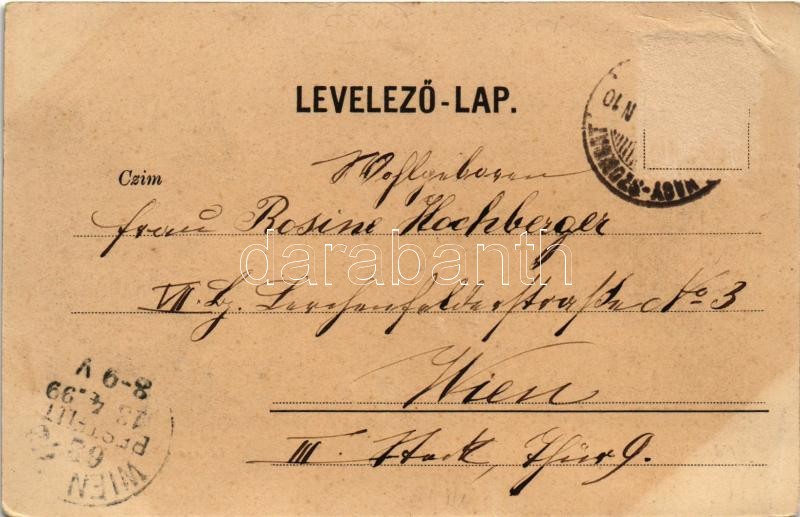 LEVELEZŐ-LAP.
NAGY-SZOMBAT
N 10
Czim
Wohlgeboren
Frau Rosine Hochberger
VII. Bz. Lerchenfelderstraße No 3
Wien
III. Stock, Thür 9.
darabanth
8-9 V
13 4.99
BESTELLT
WIEN